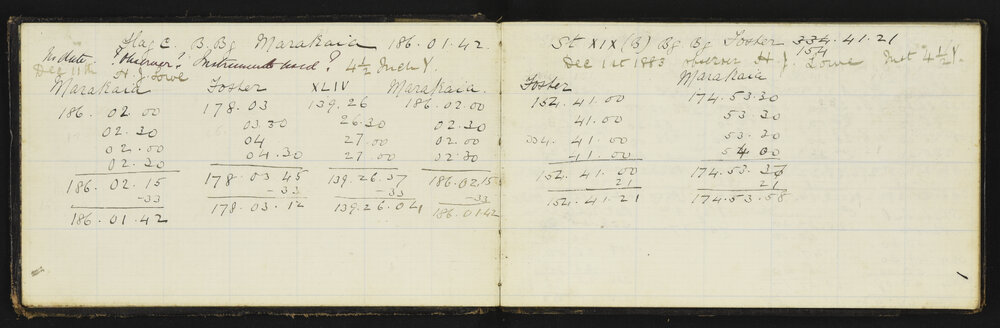 Flag C. B. Bg Marakaia 186.01.42.
No date. ? Observer? Instrument used? 4½ Inch Y.
Dec 11th H. J. Lowe
Marakaia Foster XLIV Marakaia.
186. 02. 00 178. 03 139. 26 186. 02. 00
02. 30 03. 30 26. 30 02. 30
02. 00 04 27. 00 02. 00
02. 30 04. 30 27. 00 02. 30
186. 02. 15 178. 03 45 139. 26. 37 186. 02 15
-33 -33 -33 -33
186. 01. 42 178. 03. 12 139. 26. 04 186. 01. 42
St XIX (B) Bg Bg Foster 334. 41. 21
154
Dec 1st 1883 observer H. J. Lowe Inst 4½ Y.
Foster Marakaia
154. 41. 00 174. 53. 30
41. 00 53 30
334. 41. 00 53. 30
41. 00 54 00
154. 41. 00 174. 53. 37
21 21
154. 41. 21 174. 53. 58